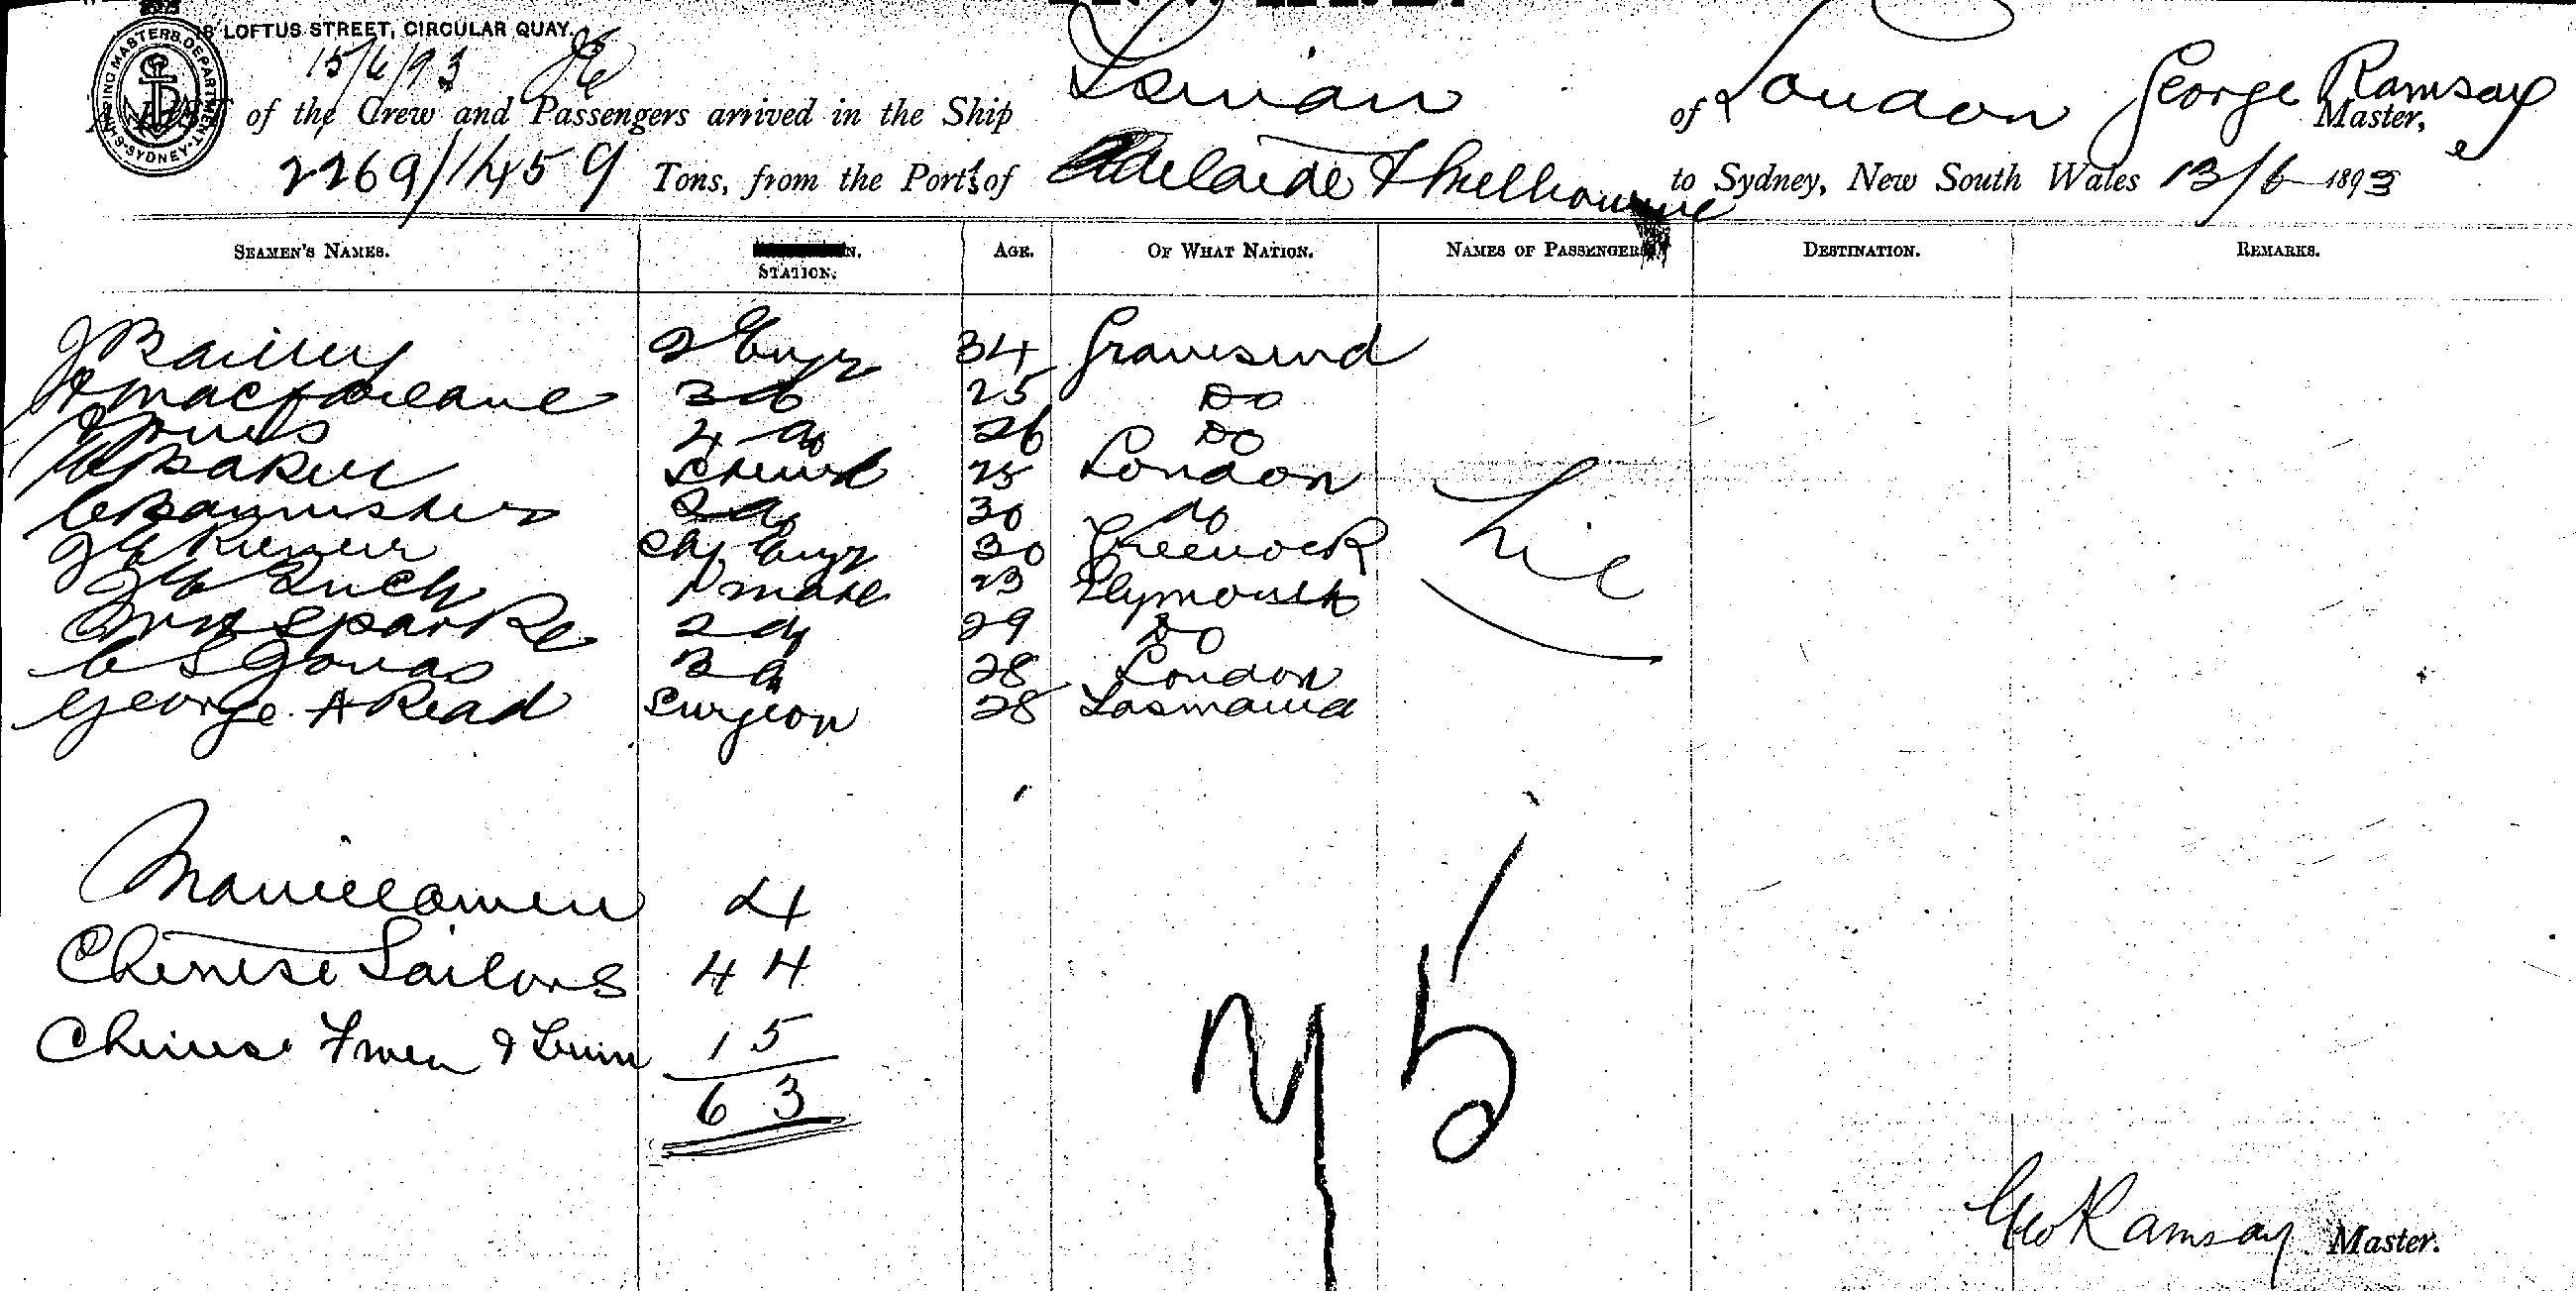 18 LOFTUS STREET, CIRCULAR QUAY.
SHIPPING MASTERS DEPARTMENT SYDNEY
15/6/93
A LIST of the Crew and Passengers arrived in the Ship Tsinan of London George Ramsay Master,
2269/1459 Tons, from the Ports of Adelaide & Melbourne to Sydney, New South Wales 13/6 1893
SEAMEN'S NAMES. STATION. AGE. OF WHAT NATION. NAMES OF PASSENGERS DESTINATION. REMARKS.
2 Engr 34 Gravesend
Macfarlane 3 do 25 Do
Jones 4 do 26 Do
W Baker Steward 25 London Nil
C Bannister 2 do 30 do
Chf Engr 30 Greenock
1 Mate 23 Plymouth
Wm Sparke 2 do 29 Do
C S Jonas 3 do 28 London
George A Read Surgeon 28 Tasmania
Manillamen 4
Chinese Sailors 44
Chinese Fmen & 15
63
75
Geo Ramsay Master.